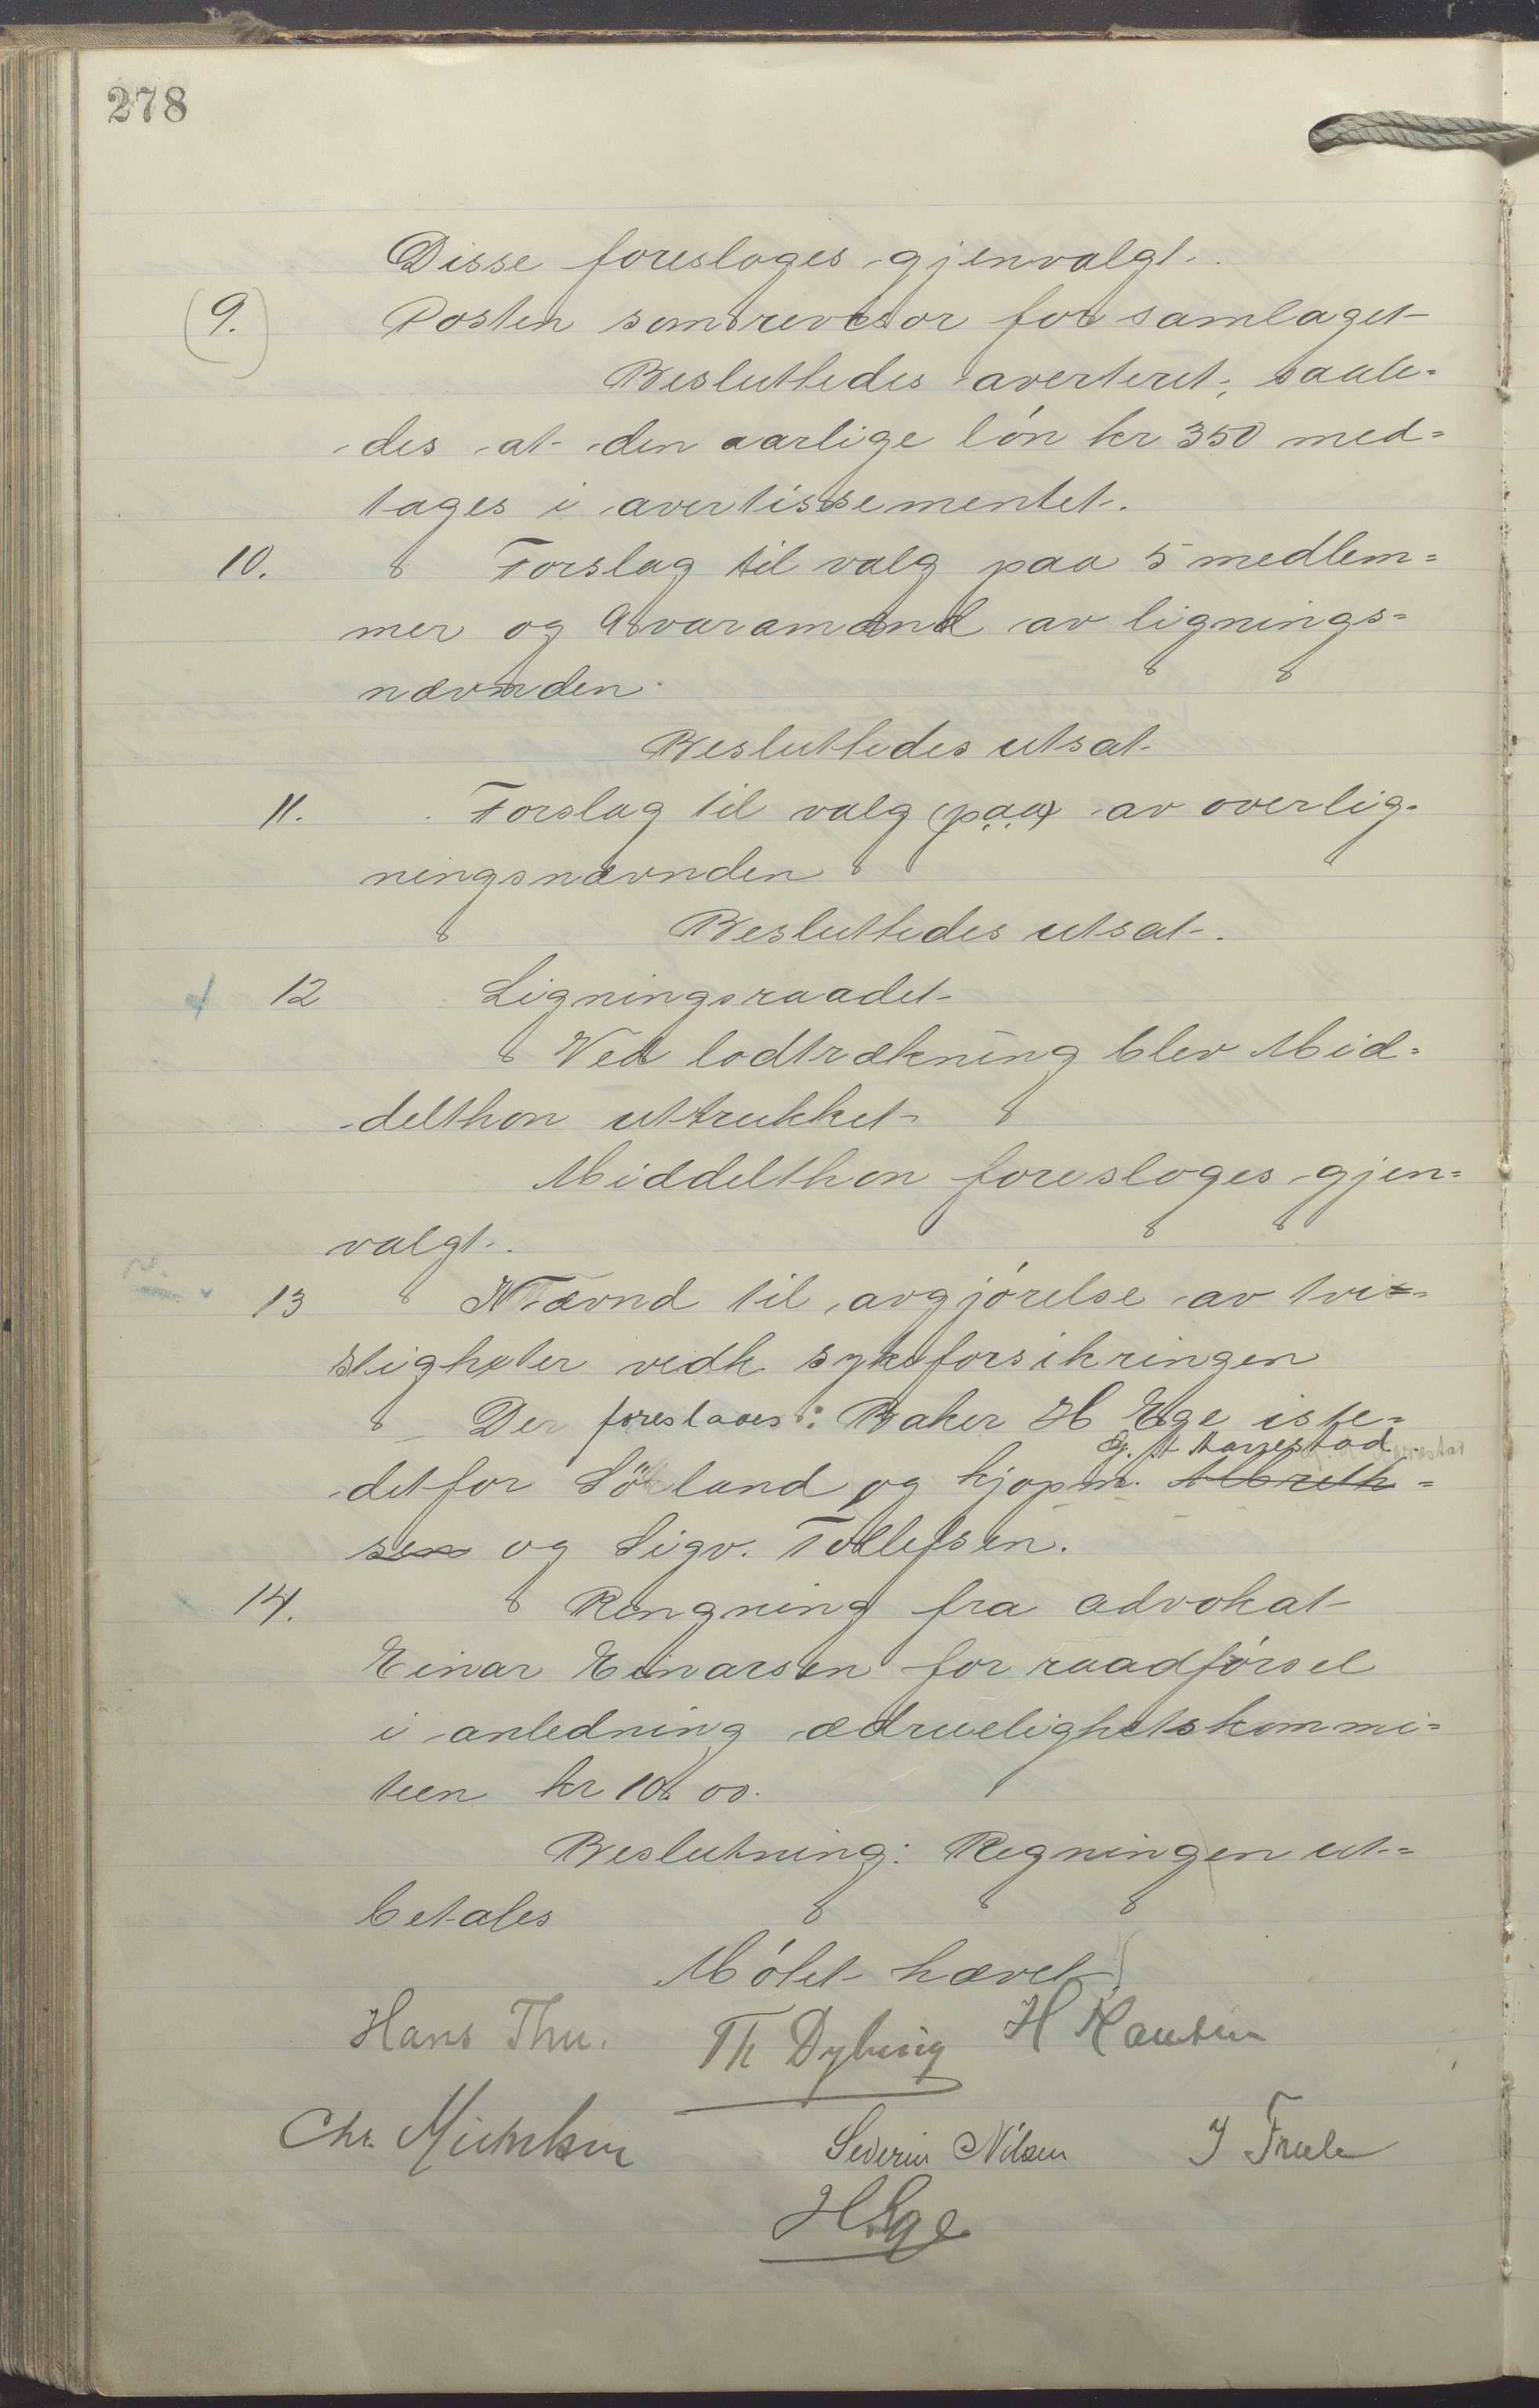 278
Disse foresloges gjenvalgt.
9. Posten som revisor for samlaget
Besluttedes averteret, saale=
des at den aarlige lön kr 350 med=
tages i avertissementet.
10. Forslag til valg paa 5 medlem=
mer og 9 varamænd av lignings=
nævnden.
Besluttedes utsat.
11. Forslag til valg (paa) av overlig=
ningsnævnden
Besluttedes utsat.
12 Ligningsraadet
Ved lodtrækning blev Mid=
delthon uttrukket
Middelthon foresloges gjen=
valgt.
13 Nævnd til avgjörelse av tvi=
stigheter vedk. sykeforsikringen
Der foreslaaes: Baker H Ege iste=
og. A Harrestad
detfor Söiland og kjøpm. Albreth=
sen og Sigv. Tollefsen.
14. Rengning fra advokat
Einar Einarsen for raadförsel
i anledning ædruelighetskommi=
teen kr 10.00.
Beslutning: Regningen ut=
betales
Mötet hævet
Hans Thu. Th Dybing H Knutsen
Chr. Michelsen Severin Nilsen
H Ege